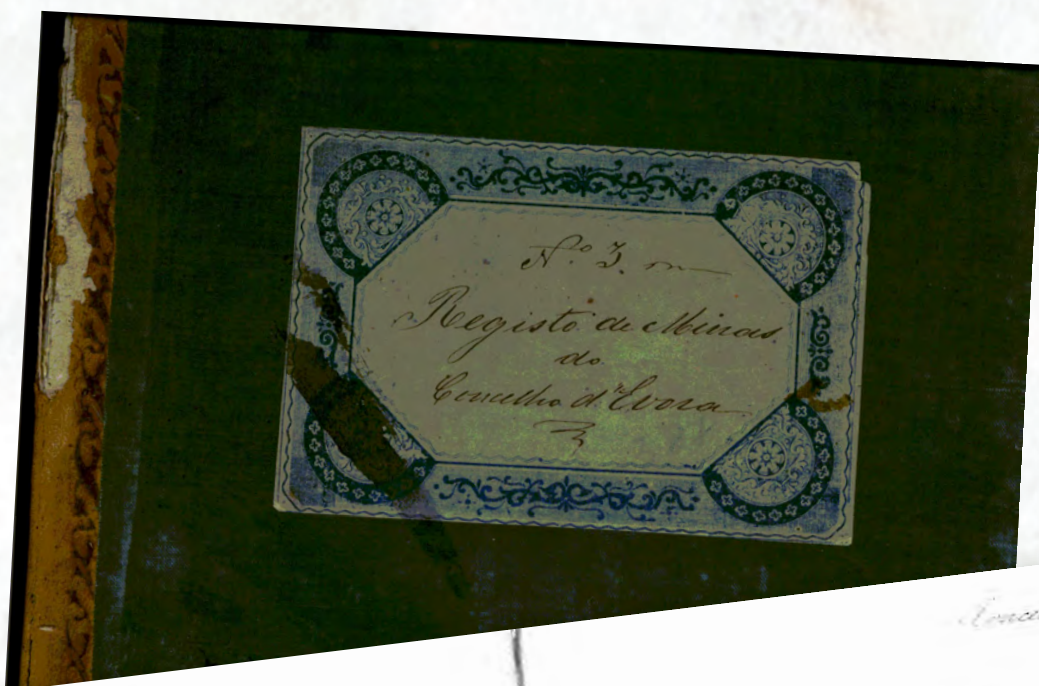 Nº 3.
Registo de Minas
do
Concelho d'Evora